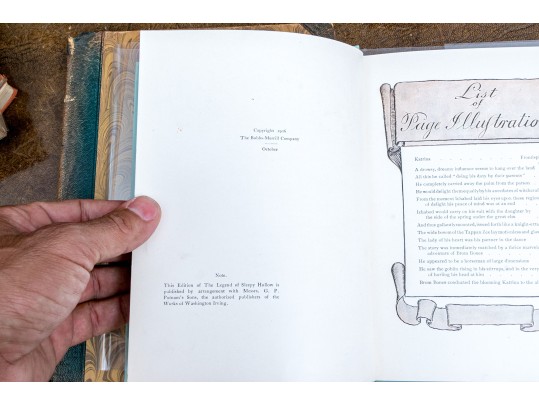 Copyright 1906
The Bobbs-Merrill Company
October
Note.
This Edition of The Legend of Sleepy Hollow is
published by arrangement with Messrs. G. P.
Putnam's Sons, the authorized publishers of the
Works of Washington Irving.
List
of
Page Illustration
Katrina . . . . . . Frontisp
A drowsy, dreamy influence seems to hang over the land
All this he called "doing his duty by their parents"
He completely carried away the palm from the parson
He would delight them equally by his anecdotes of witchcraft
From the moment Ichabod laid his eyes upon these regions
of delight his peace of mind was at an end
Ichabod would carry on his suit with the daughter by
the side of the spring under the great elm
And thus gallantly mounted, issued forth like a knight-erra
The wide bosom of the Tappan Zee lay motionless and glass
The lady of his heart was his partner in the dance
The story was immediately matched by a thrice marvel
adventure of Brom Bones
He appeared to be a horseman of large dimensions
He saw the goblin rising in his stirrups, and in the very
of hurling his head at him
Brom Bones conducted the blooming Katrina to the al